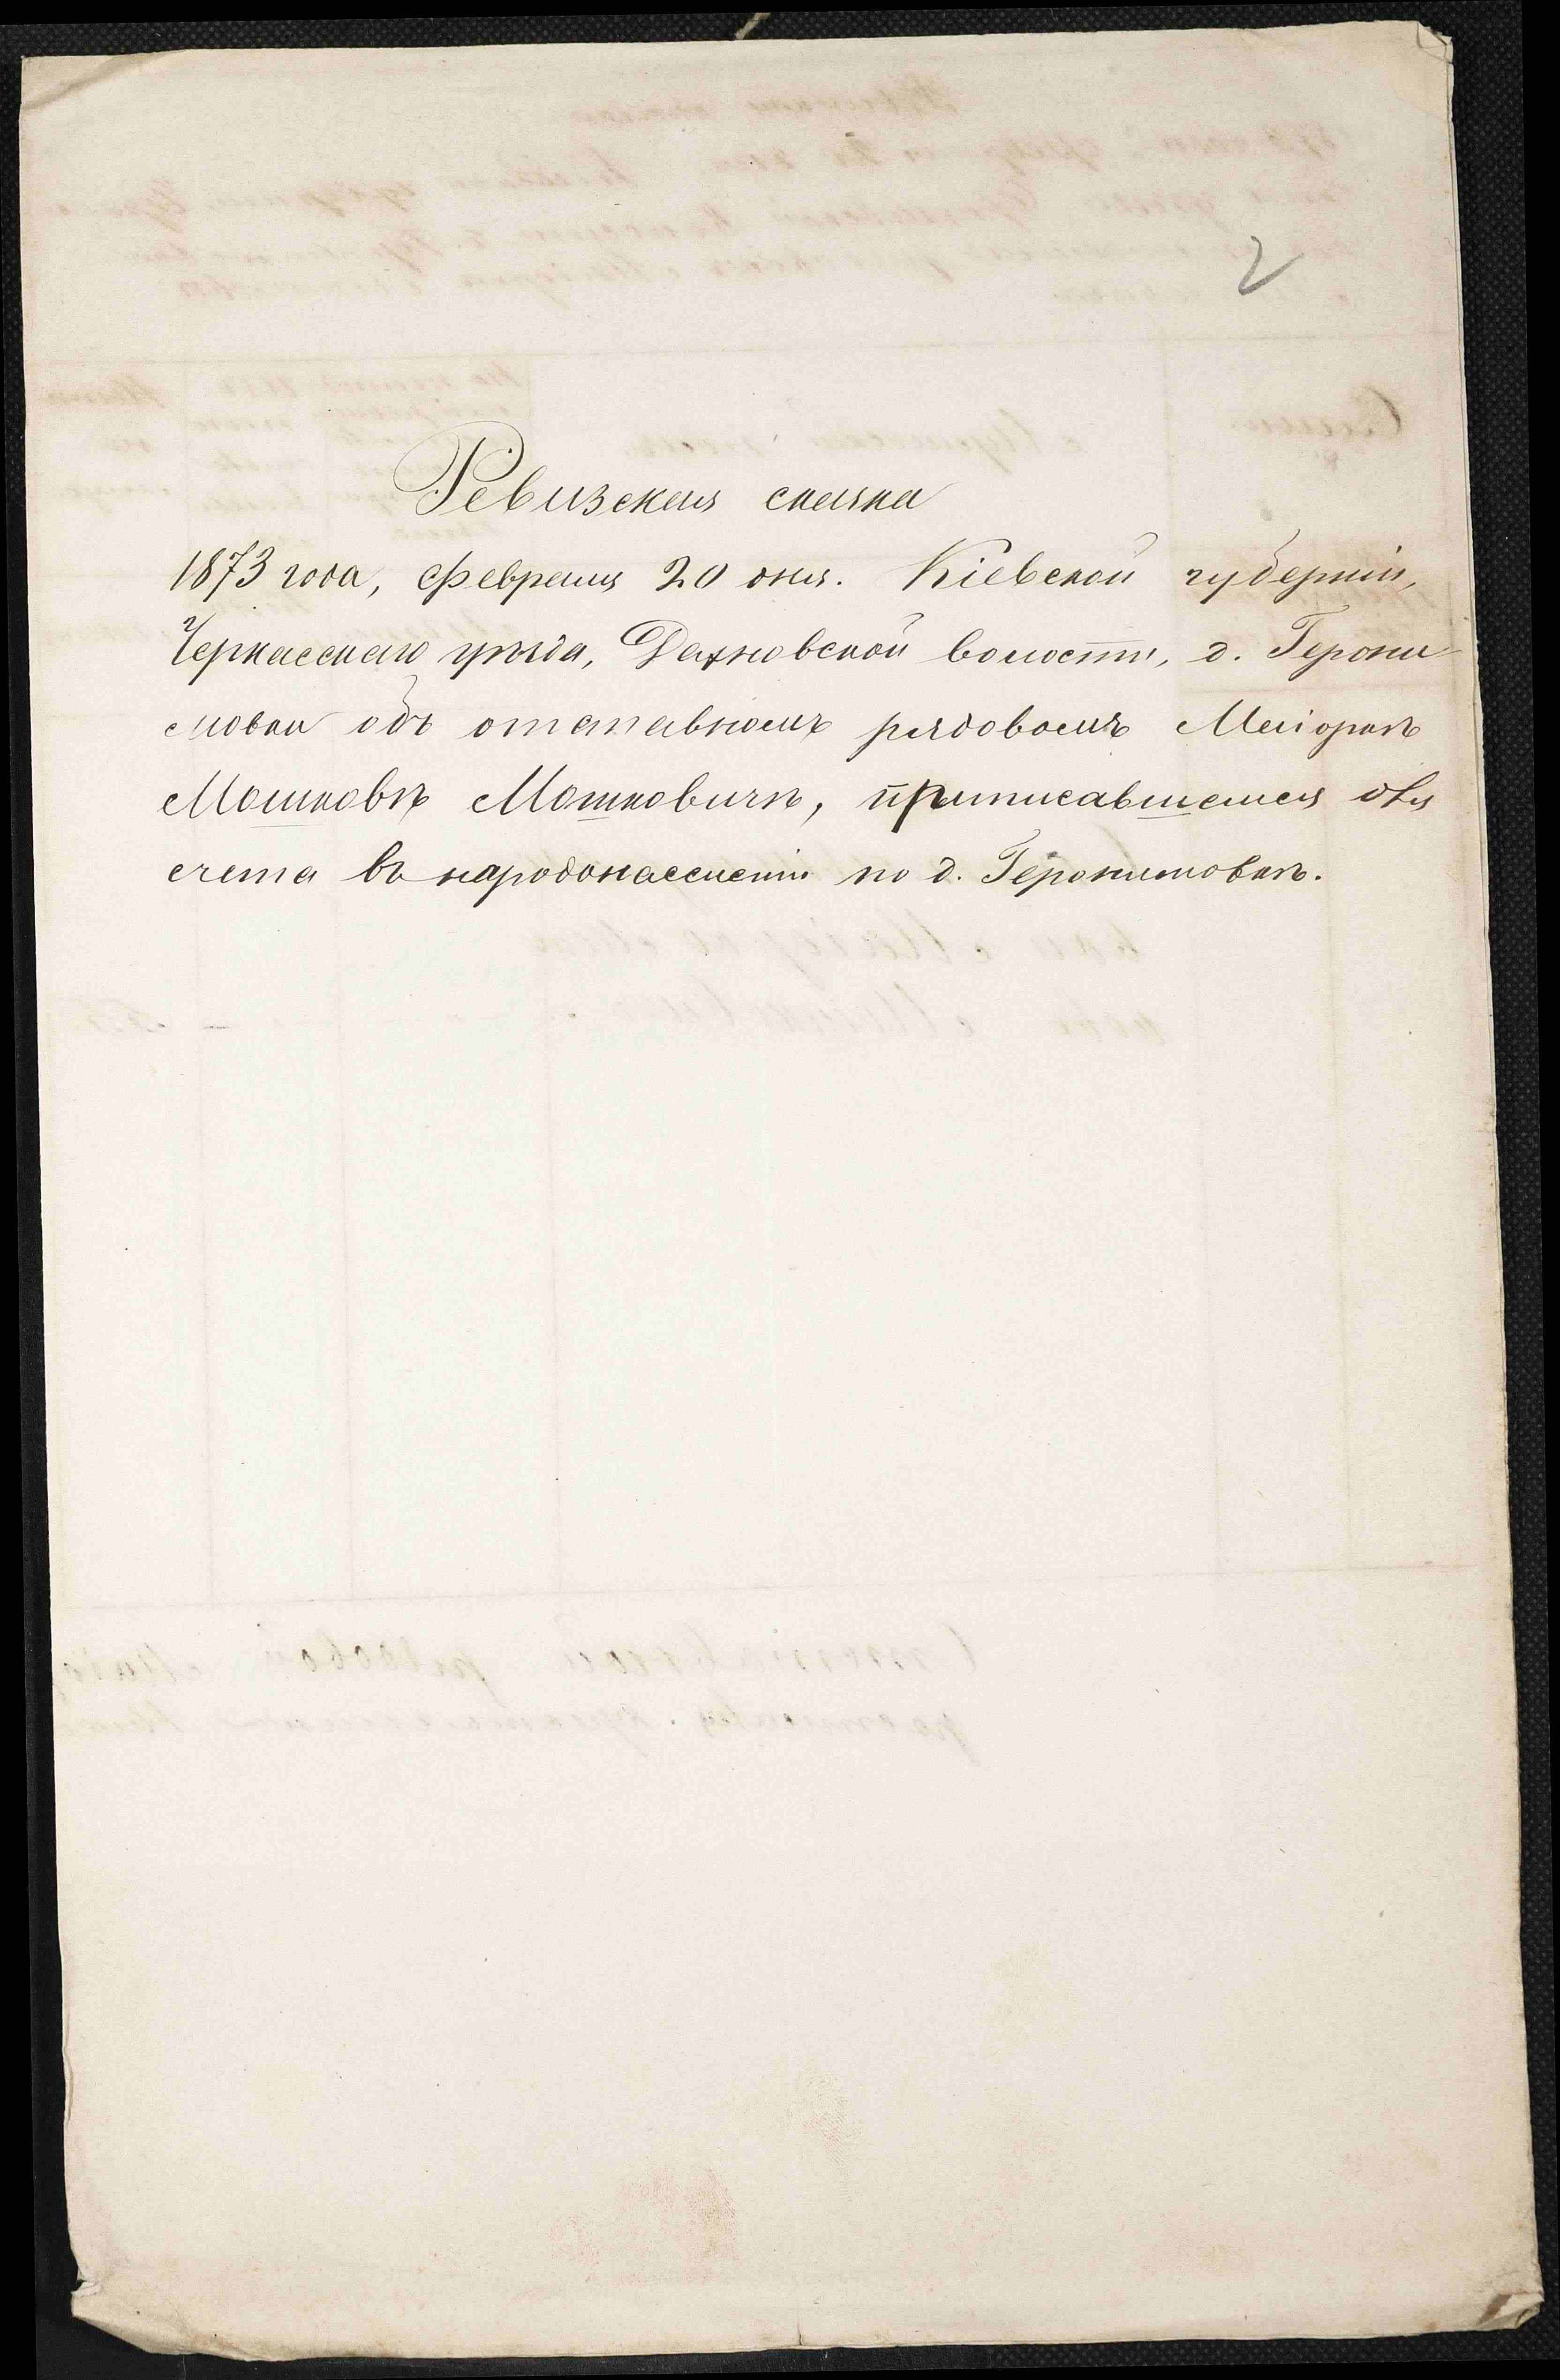 2
Ревизская сказка
1873 года, февраля 20 дня. Кіевской губерніи,
Черкасскаго уѣзда, Дахновской волости, д. Герони-
мовки объ отставномъ рядовомъ Маіоркѣ
Мошковѣ Мошковичѣ, приписавшемся для
счета въ народонаселеніи по д. Геронимовкѣ.